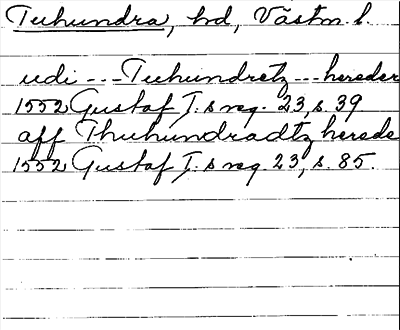 Tuhundra, hd, Västm. l.
udi --- Tuhundretz --- hereder
1552 Gustaf I:s reg. 23, s. 39
aff Thuhundradtz herede
1552 Gustaf I:s reg. 23, s. 85.